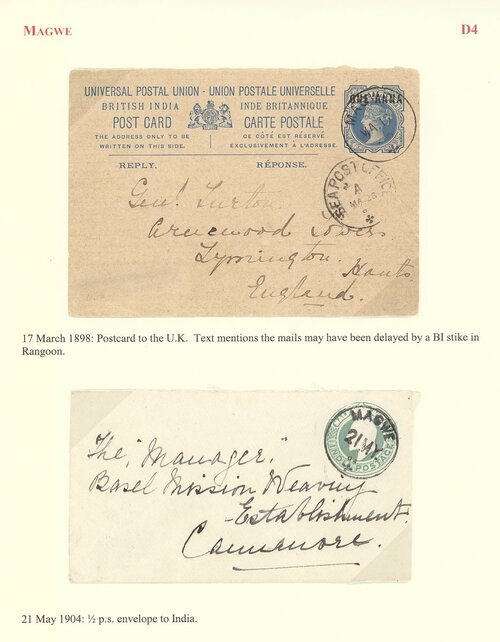 MAGWE
D4
UNIVERSAL POSTAL UNION - UNION POSTALE UNIVERSELLE
BRITISH INDIA INDE BRITANNIQUE
POST CARD CARTE POSTALE
THE ADDRESS ONLY TO BE CE CÔTÉ EST RÉSERVÉ
WRITTEN ON THIS SIDE. EXCLUSIVEMENT A L'ADRESSE.
REPLY. RÉPONSE.
ONE ANNA
SEA POST OFFICE
A
Genl. Turton
Towers
Lymington.
Hants
England.
17 March 1898: Postcard to the U.K. Text mentions the mails may have been delayed by a BI stike in
Rangoon.
MAGWE
21 MY
INDIA POSTAGE
The "Manager,"
Basel Mission Weaving
Establishment.
Cannanore.
21 May 1904: ½ p.s. envelope to India.